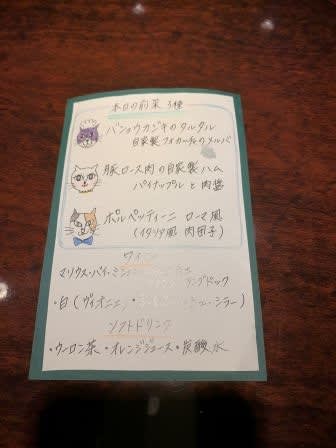 本日の前菜 3種
バショウカジキのタルタル
自家製フォカッチャのメルバ
豚ロース肉の自家製ハム
パイナップルと肉醤
ポルペッティーニ ローマ風
(イタリア風 肉団子)
ワイン
マリウス・バイ・ミシェル
ラングドック
・白(ヴィオニエ)
シラー)
ソフトドリンク
・ウーロン茶・オレンジジュース・炭酸水